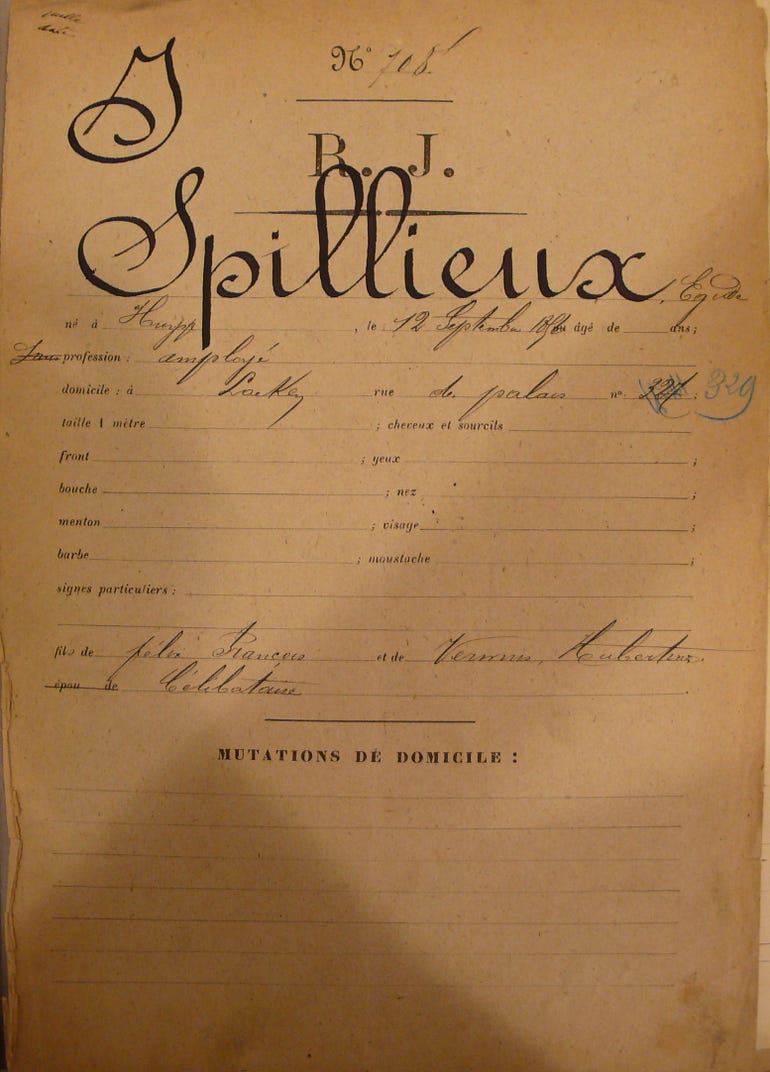 quelle
date
N° 708
S
R. J.
Spillieux, Egide
né à Huypp, le 12 Septembre ou âgé de ans;
profession : employé
domicile : à Laeken rue du palais n° 327; 329
taille 1 mètre ; cheveux et sourcils
front ; yeux ;
bouche ; nez ;
menton ; visage ;
barbe ; moustache ;
signes particuliers :
fils de félix François et de Hubertine.
épou de Célibataire
MUTATIONS DE DOMICILE :